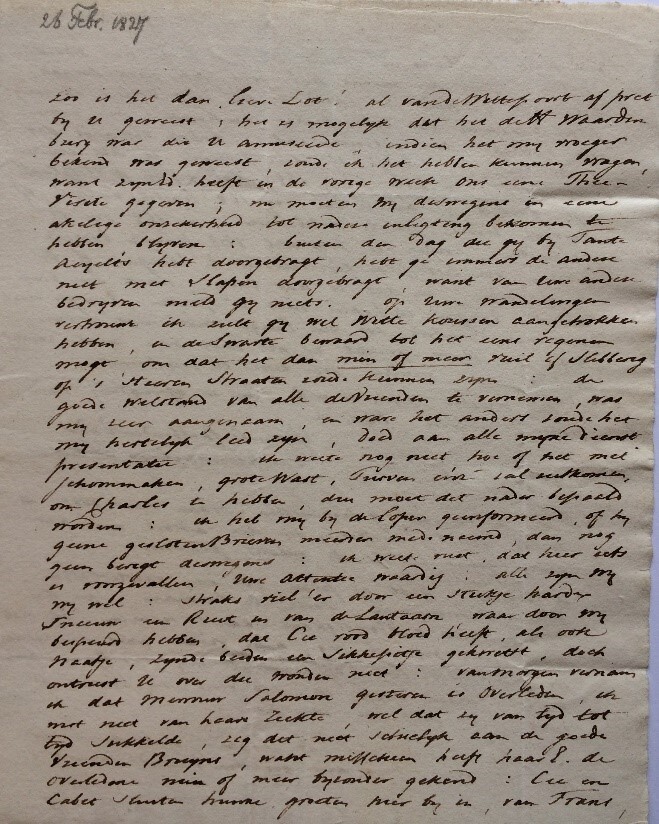 26 Febr. 1827
zoo is het dan, lieve Lot! al van de Wittepoort af pret
by U geweest; het is mogelyk dat het de Hr Waarden
burg was die U amuseerde, indien het my vroeger
bekend was geweest, zoude ik het hebben kunnen vragen,
want zynEd. heeft in de vorige week ons eene Thee-
Visite gegeven; nu moeten wy desweegens in eene
akelige onzekerheid tot nadere inligting bekoomen te
hebben blyven: buiten den dag die gy by Tante
hebt doorgebragt, hebt ge immers de andere
niet met slapen doorgebragt, want van Uwe andere
bedryven meld gy niets. op Uwe wandelingen
vertrouwe ik zult gy wel Witte Koussen aangetrokken
hebben, en de Swarte bewaard tot het eens regenen
mogt, om dat het dan min of meer vuil of slibberig
op 's Heeren Straaten zoude kunnen zyn: de
goede welstand van alle de Vrienden te vernemen, was
my zeer aangenaam, en ware het anders zoude het
my hertelyk leed zyn, doed aan alle myne dienst
presentatie: ik weete nog niet hoe of het met
schonmaken, grote Wast, Turven enz: zal uitkomen,
om Charles te hebben, dus moet dit nader bepaald
worden: ik heb my by de Loper geinformeerd, of hy
geene gesloten Brieven meenden mede neemd, dan nog
geen berigt desweegens: ik weete niet, dat hier iets
is voorgevallen, Uwe attentie waardig: alle zyn wy
nu wel: Straks viel 'er door een stukje harde
Sneeuw een Ruit in van de Lantaarn waar door wy
bespeurd hebben, dat Cee rood bloed heeft, als ook
Naatje, zynde beiden een Sikkepitje gekwetst, doch
ontrust U over die wonden niet: van morgen vernam
ik dat Mevrouw Salomon gisteren is Overleden, ik
wist niet van haare Ziekte, wel dat zy van tyd tot
tyd Sukkelde, zeg dit niet schielyk aan de goede
Vrienden Bruyns, want misschien heeft haarE. de
overledene min of meer byzonder gekend: Cee en
Cabet sluiten hunne groeten hier by in, van Frans,